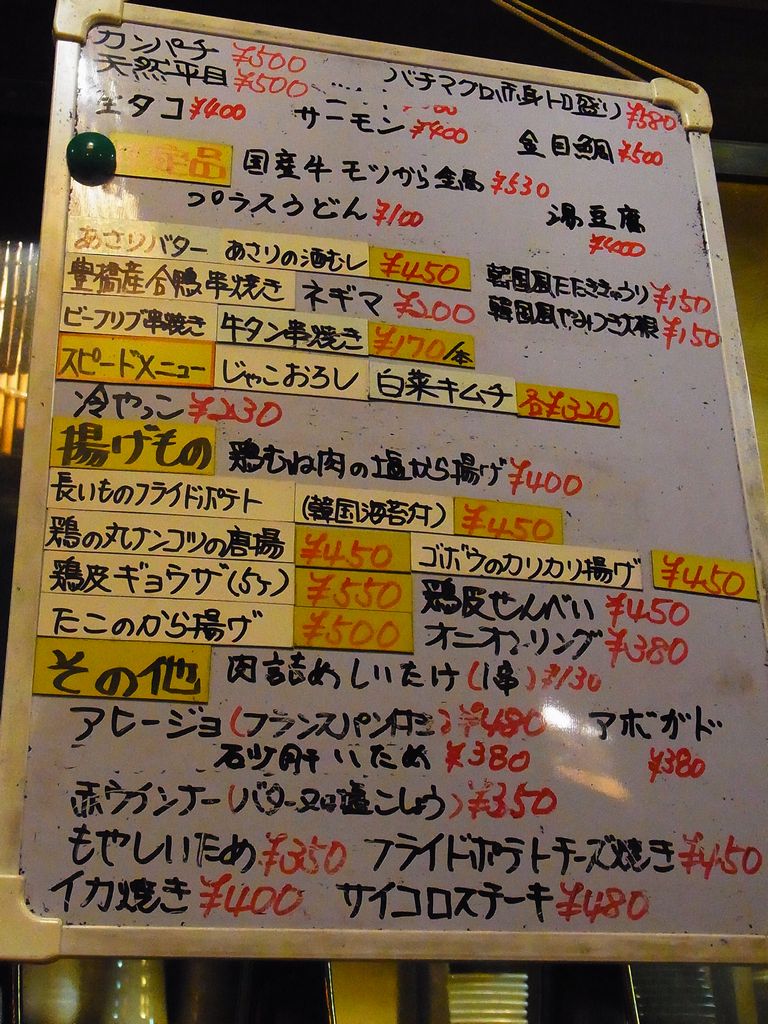 カンパチ ¥500
天然平目 ¥500 バチマグロ赤身トロ盛り ¥580
生タコ ¥400 サーモン ¥400 金目鯛 ¥500
国産牛モツから金鍋 ¥530
プラスうどん ¥100 湯豆腐 ¥400
あさりバター あさりの酒むし ¥450 韓国風たたききゅうり ¥150
豊橋産合鴨串焼き ネギマ ¥200 韓国風やみつき大根 ¥150
ビーフリブ串焼き 牛タン串焼き ¥170/本
スピードメニュー じゃこおろし 白菜キムチ 各¥320
冷やっこ ¥230
揚げもの 鶏むね肉の塩から揚げ ¥400
長いものフライドポテト (韓国海苔付) ¥450
鶏の丸ナンコツの唐揚 ¥450 ゴボウのカリカリ揚げ ¥450
鶏皮ギョウザ(5ヶ) ¥550 鶏皮せんべい ¥450
たこのから揚げ ¥500 オニオンリング ¥380
その他 肉詰めしいたけ(1串) ¥130
アヒージョ(フランスパン付き) ¥480 アボガド ¥380
石少肝いため ¥380
赤ウインナー(バター又は塩こしょう) ¥350
もやしいため ¥350 フライドポテトチーズ焼き ¥450
イカ焼き ¥400 サイコロステーキ ¥480